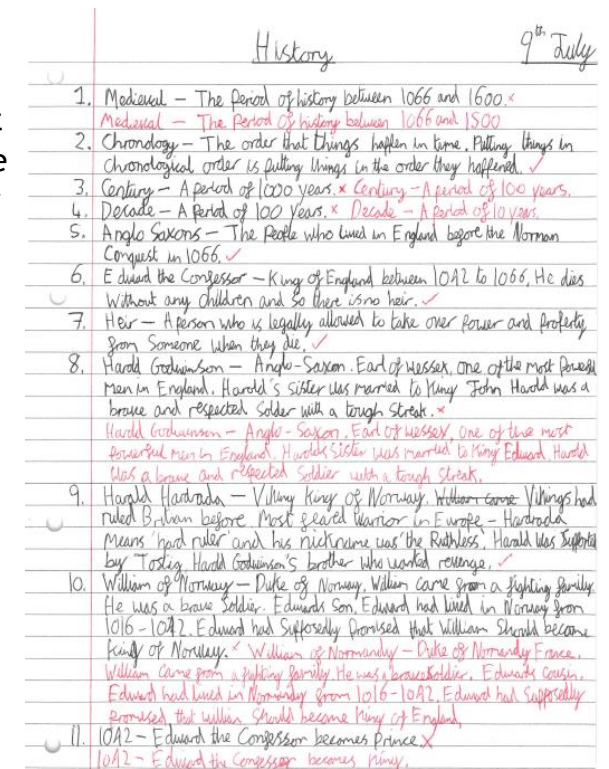 History
9th July
1. Medieval – The Period of history between 1066 and 1600. ×
Medieval – The Period of history between 1066 and 1500
2. Chronology – The order that things happen in time. Putting things in
chronological order is putting things in the order they happened. ✓
3. Century – A period of 1000 years. × Century – A period of 100 years.
4. Decade – A Period of 100 Years. × Decade – A Period of 10 years.
5. Anglo Saxons – The People who lived in England before the Norman
Conquest in 1066. ✓
6. Edward the Confessor – King of England between 1042 to 1066. He dies
without any children and so there is no heir. ✓
7. Heir – A person who is legally allowed to take over Power and Property
from Someone when they die. ✓
8. Harold Godwinson – Anglo-Saxon. Earl of wessex, one of the most Powerful
Men in England. Harold's sister was married to King John Harold was a
brave and respected Solder with a tough streak. ×
Harold Godwinson – Anglo-Saxon. Earl of wessex, one of the most
powerful men in England. Harolds Sister was married to King Edward. Harold
was a brave and respected Soldier with a tough streak.
9. Harald Hardrada – Viking King of Norway. William came Vikings had
ruled Britian before. Most feared warrior in Europe – Hardrada
Means 'hard ruler' and his nickname was 'the Ruthless'. Harald was Supported
by Tostig, Harold Godwinson's brother who wanted revenge. ✓
10. William of Norway – Duke of Norway, William came from a fighting family
He was a brave Soldier. Edwards Son, Edward had lived in Norway from
1016-1042. Edward had Supposedly Promised that William Should become
King of Norway. × William of Normandy – Duke of Normandy France.
William Came from a fighting family. He was a brave Soldier. Edwards cousin,
Edward had lived in Normandy from 1016-1042. Edward had Supposedly
promised, that willian Should become King of England.
11. 1042 – Edward the Confessor becomes Prince ×
1042 – Edward the Confessor becomes King.